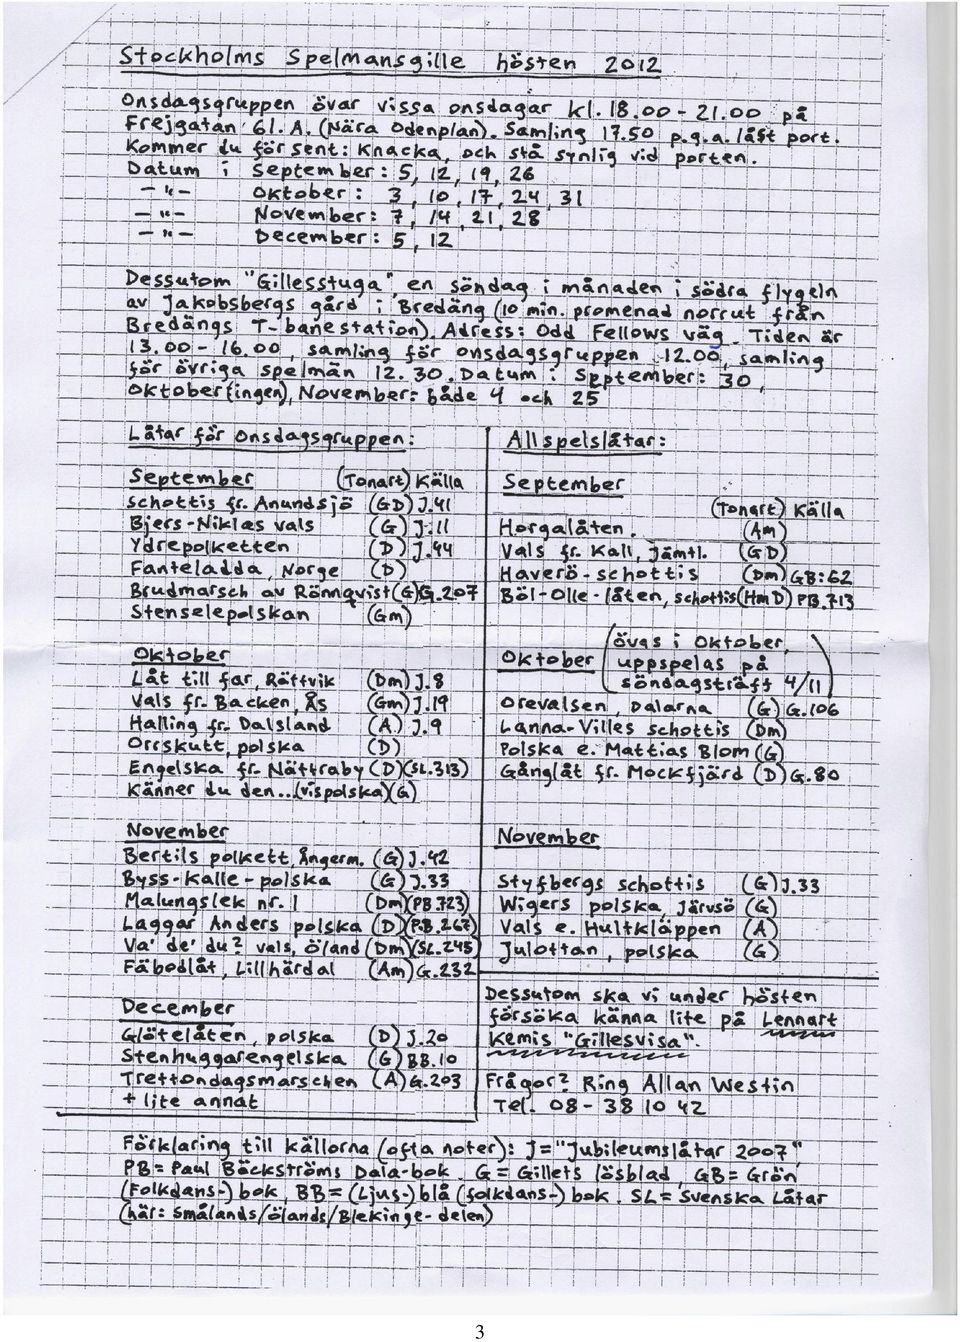 Stockholms Spelmansgille hösten 2012
Onsdagsgruppen övar vissa onsdagar kl. 18.00 - 21.00 på
Frejgatan 61. A. (Nära Odenplan). Samling 17.50 p.g.a. låst port.
Kommer du för sent: Knacka, och stå synlig vid porten.
Datum i September: 5, 12, 19, 26
- " - Oktober: 3, 10, 17, 24, 31
- " - November: 7, 14, 21, 28
- " - December: 5, 12
Dessutom "Gillesstuga" en söndag i månaden i södra flygeln
av Jakobsbergs gård i Bredäng (10 min. promenad norrut från
Bredängs T-banestation). Adress: Odd Fellows väg. Tiden är
13.00 - 16.00, samling för onsdagsgruppen 12.00, samling
för övriga spelmän 12.30. Datum i September: 30,
Oktober (ingen), November: både 4 och 25
Låtar för Onsdagsgruppen:
September (Tonart) Källa
Schottis fr. Anundsjö (GD) J.41
Bjers-Niklas vals (G) J.11
Ydrepolketten (D) J.44
Fanteladda, Norge (D)
Brudmarsch av Rönnqvist (G) G.207
Stenselepolskan (Gm)
Oktober
Låt till far, Rättvik (Dm) J.8
Vals fr. Backen, Ås (Gm) J.19
Halling fr. Dalsland (A) J.9
Orrskutt, polska (D)
Engelska fr. Nättraby (D) (SL.313)
Känner du den.. (vispolska) (G)
November
Bertils polkett, Ångerm. (G) J.42
Byss-Kalle-polska (G) J.33
Malungslek nr. 1 (Dm) (PB.723)
Laggar Anders polska (D) (P.B.267)
Va' de' du? vals, Öland (Dm) (SL.245)
Fäbodlåt, Lillhärdal (Am) G.232
December
Glötelåten, polska (D) J.20
Stenhuggarengelska (G) BB.10
Trettondagsmarschen (A) G.203
+ lite annat
Allspelslåtar:
September
(Tonart) Källa
Horgalåten (Am)
Vals fr. Kall, Jämtl. (GD)
Haverö-schottis (Dm) GB:62
Böl-Olle-låten, schottis (Hm D) PB.713
Oktober (övas i Oktober,
uppspelas på
söndagsträff 4/11)
Orevalsen, Dalarna (G) G.106
Lanna-Villes schottis (Dm)
Polska e. Mattias Blom (G)
Gånglåt fr. Mockfjärd (D) G.80
November
Styfbergs schottis (G) J.33
Wigers polska, Järvsö (G)
Vals e. Hultkläppen (A)
Julottan, polska (G)
Dessutom ska vi under hösten
försöka känna lite på Lennart
Kemis "Gillesvisa".
Frågor? Ring Allan Westin
Tel. 08 - 38 10 42
Förklaring till källorna (ofta noter): J = "Jubileumslåtar 2007"
PB = Paul Bäckströms Dala-bok. G = Gillets lösblad, GB = Grön
(Folkdans-) bok, BB = (Ljus-) blå (folkdans-) bok. SL = Svenska Låtar
(här: Smålands/Ölands/Blekinge-delen)
3